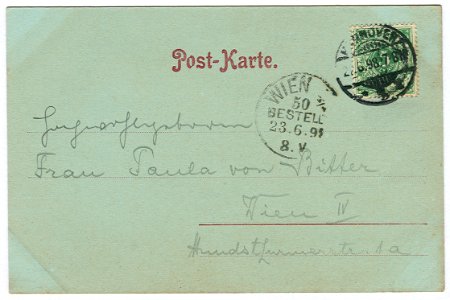 Post-Karte.
HANNOVER
WIEN
50
BESTELL
23.6.9
8.V
Hochwohlgeboren
Frau Paula von Bitter
Wien IV
Hundsthurmerstr. 1a